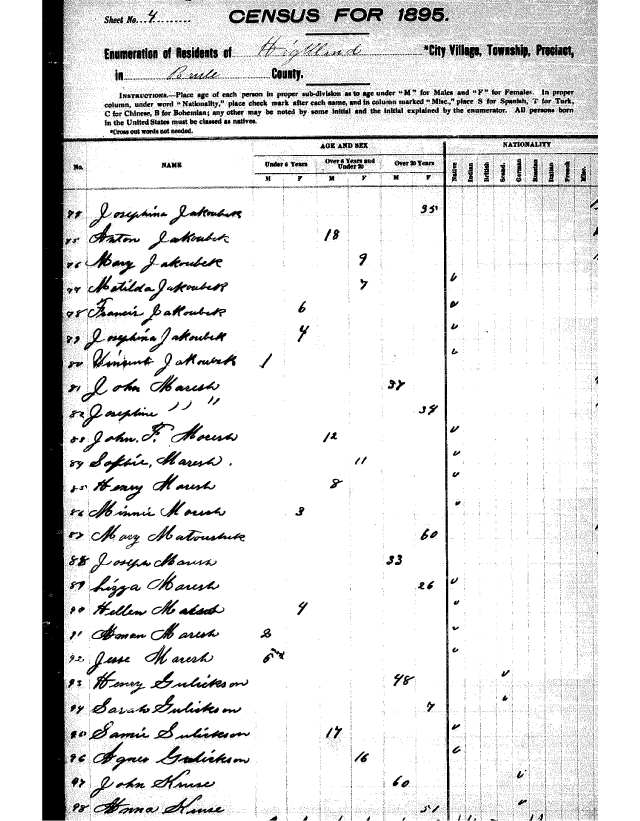 Sheet No. 4
CENSUS FOR 1895.
Enumeration of Residents of Highland *City Village, Township, Precinct,
in Brule County.
INSTRUCTIONS.—Place age of each person in proper sub-division as to age under "M" for Males and "F" for Females. In proper
column, under word "Nationality," place check mark after each name, and in column marked "Misc.," place S for Spanish, T for Turk,
C for Chinese, B for Bohemian; any other may be noted by some initial and the initial explained by the enumerator. All persons born
in the United States must be classed as natives.
*Cross out words not needed.
AGE AND SEX NATIONALITY
No. NAME Under 6 Years Over 6 Years and Under 20 Over 20 Years Native Indian British Scand. German Russian Italian French Misc.
M F M F M F
Josephina Jakoubek 35
75 Anton Jakoubek 18
76 Mary Jakoubek 9
77 Matilda Jakoubek 7 v
78 Francis Jakoubek 6 v
79 Josephina Jakoubek 4 v
80 Vincent Jakoubek 1 v
81 John Maresh 37
82 Josephine " " 34
83 John. F. Maresh 12 v
84 Sophie, Maresh. 11 v
85 Henry Maresh 8 v
86 Minnie Maresh 3 v
87 Mary Matoushek 60
88 Joseph Maresh 33
89 Lizza Maresh 26 v
90 Hellen 4 v
91 Maresh 2 v
92 Jesse Maresh v
93 Henry Gulickson 48 v
94 Sarah Gulickson 7 v
95 Samie Gulickson 17 v
96 Agnes Gulickson 16 v
97 John Kruse 60 v
98 Anna Kruse 51 v